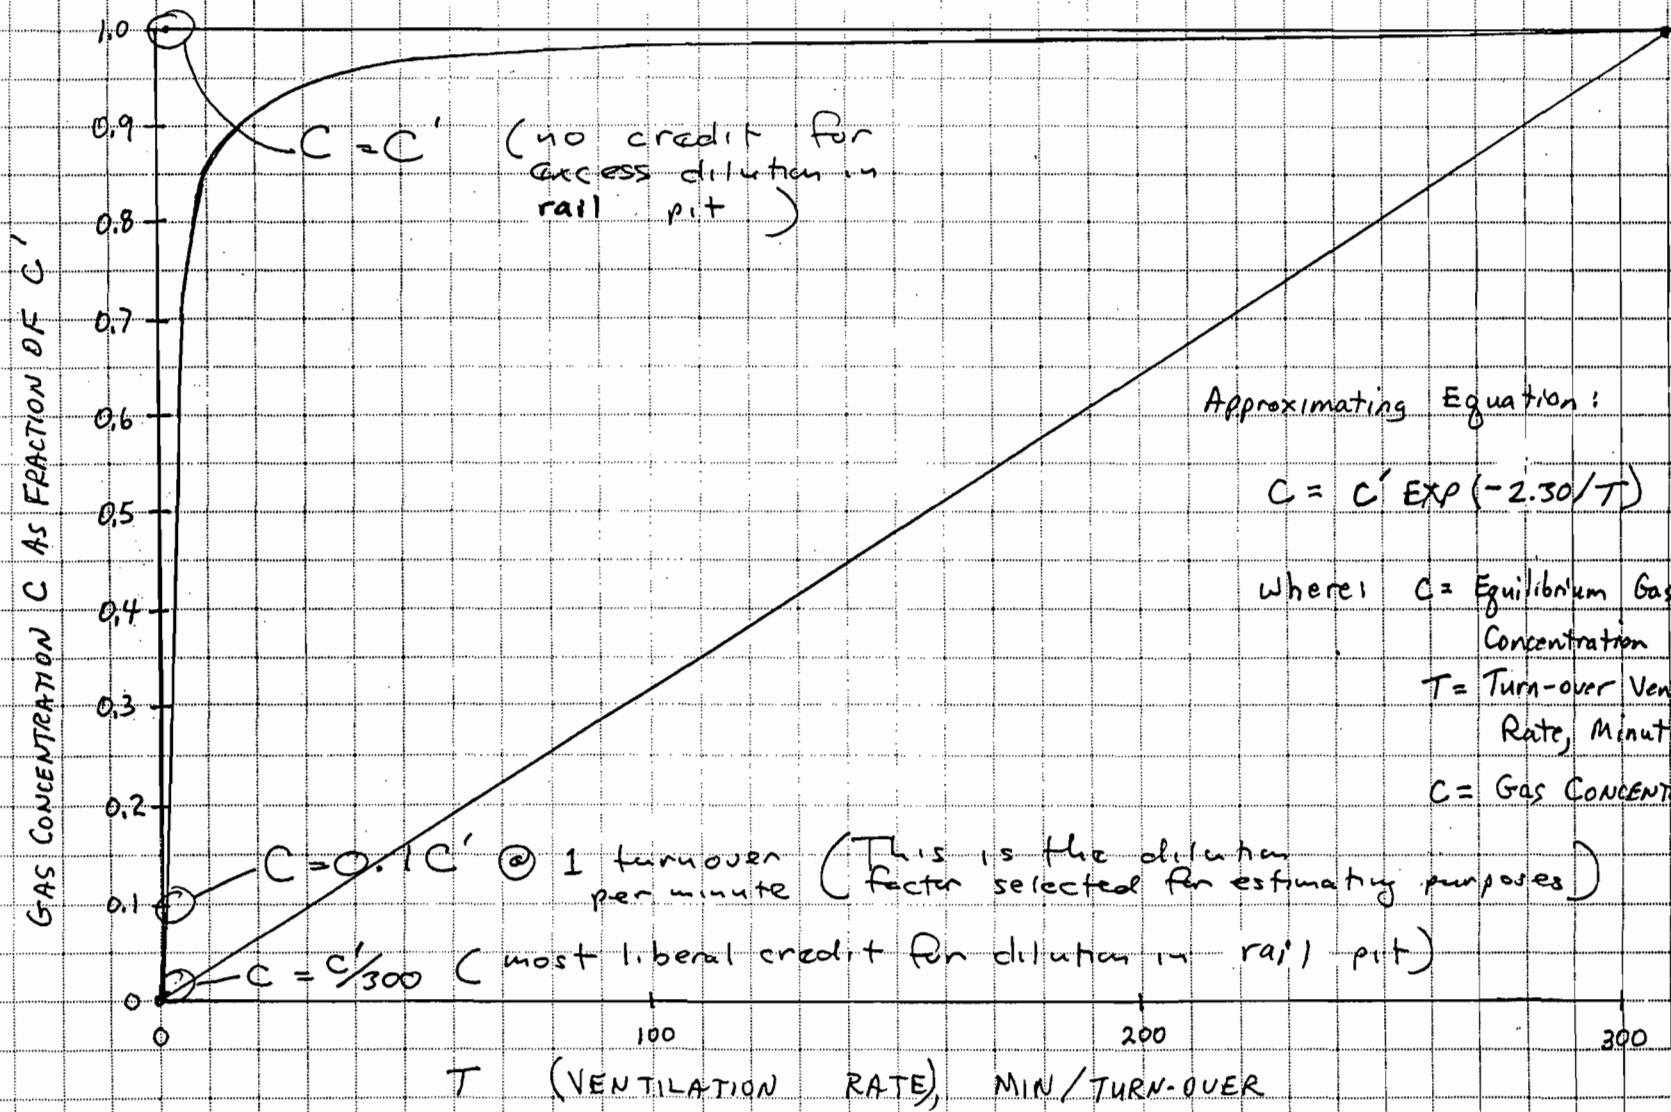 GAS CONCENTRATION C AS FRACTION OF C'
1.0
0.9
0.8
0.7
0.6
0.5
0.4
0.3
0.2
0.1
0
C = C' (no credit for
excess dilution in
rail pit)
Approximating Equation:
C = C' EXP(-2.30/T)
Where: C = Equilibrium Gas
Concentration
T = Turn-over Ven
Rate, Minut
C = Gas CONCENT
C = 0.1C' @ 1 turnover
per minute
(This is the dilution
factor selected for estimating purposes)
C = C'/300 (most liberal credit for dilution in rail pit)
0 100 200 300
T (VENTILATION RATE), MIN/TURN-OVER